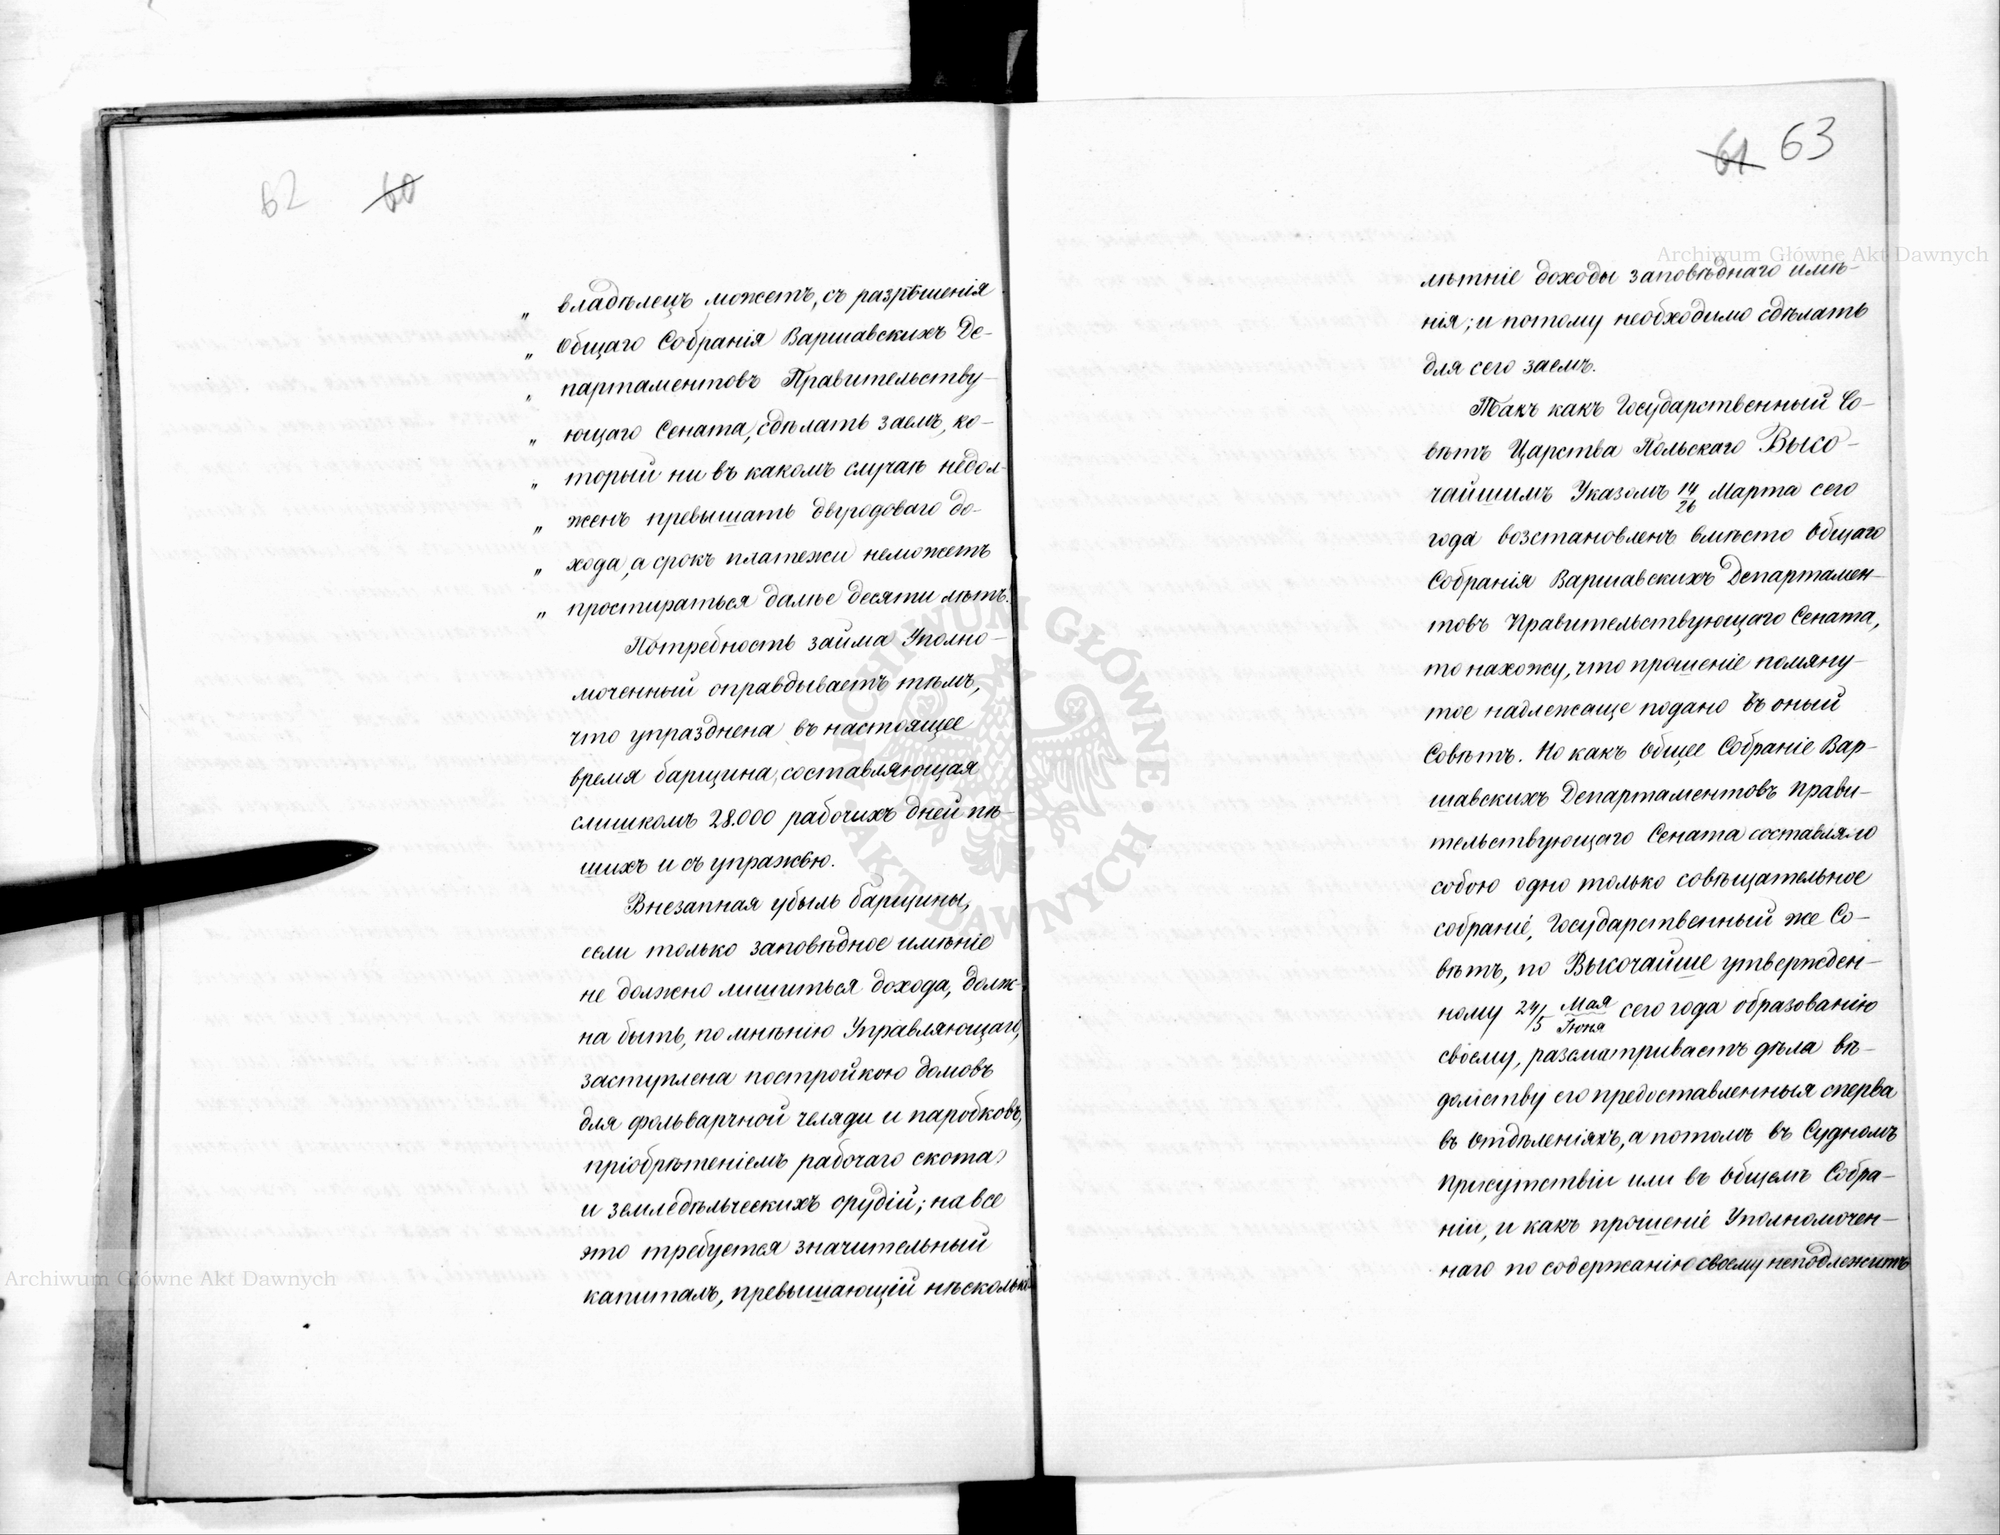 62 60
„ владѣлецъ можетъ, съ разрѣшенія
„ Общаго Собранія Варшавскихъ Де-
„ партаментовъ Правительству-
„ ющаго Сената, сдѣлать заемъ, ко-
„ торый ни въ какомъ случаѣ недол-
„ женъ превышать двугодоваго до-
„ хода, а срокъ платежи неможетъ
„ простираться далѣе десяти лѣтъ.
Потребность займа Уполно-
моченный оправдываетъ тѣмъ,
что упразднена въ настоящее
время барщина, составляющая
слишкомъ 28.000 рабочихъ дней пѣ-
шихъ и съ упряжью.
Внезапная убыль барщины,
если только заповѣдное имѣніе
не должно лишиться дохода, долж-
на быть, по мнѣнію Управляющаго,
заступлена постройкою домовъ
для фольварчной челяди и паробковъ,
пріобрѣтеніемъ рабочаго скота
и земледѣльческихъ орудій; на все
это требуется значительный
капиталъ, превышающій нѣсколько
61 63
лѣтніе доходы заповѣднаго имѣ-
нія; и потому необходимо сдѣлать
для сего заемъ.
Такъ какъ Государственный Со-
вѣтъ Царства Польскаго Высо-
чайшимъ Указомъ 14/26 Марта сего
года возстановленъ вмѣсто Общаго
Собранія Варшавскихъ Департамен-
товъ Правительствующаго Сената,
то нахожу, что прошеніе помяну-
тое надлежаще подано въ оный
Совѣтъ. Но какъ Общее Собраніе Вар-
шавскихъ Департаментовъ Прави-
тельствующаго Сената составляло
собою одно только совѣщательное
собраніе, Государственный же Со-
вѣтъ, по Высочайше утвержден-
ному 24/5 Мая/Іюня сего года образованію
своему, разсматриваетъ дѣла вѣ-
домству его предоставленныя сперва
въ Отдѣленіяхъ, а потомъ въ Судномъ
Присутствіи или въ Общемъ Собра-
ніи, и какъ прошеніе Уполномочен-
наго по содержанію своему неподлежитъ
Archiwum Główne Akt Dawnych
Archiwum Główne Akt Dawnych
ARCHIWUM GŁÓWNE · AKT DAWNYCH ·